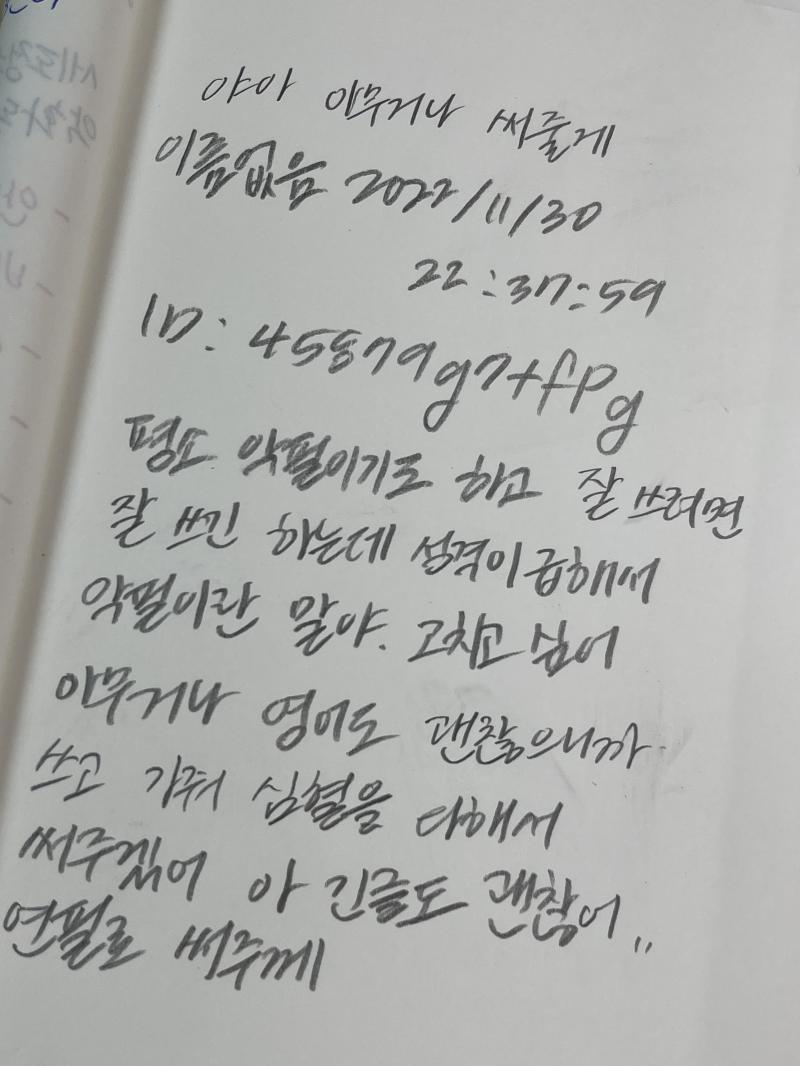 야아 아무거나 써줄게
이름없음 2022/11/30
22:37:59
ID: 45879g7+fPg
평소 악필이기도 하고 잘 쓰려면
잘 쓰긴 하는데 성격이 급해서
악필이란 말야. 고치고 싶어
아무거나 영어도 괜찮으니까
쓰고 가줘 심혈을 다해서
써주겠어 아 긴글도 괜찮어..
연필로 써주께